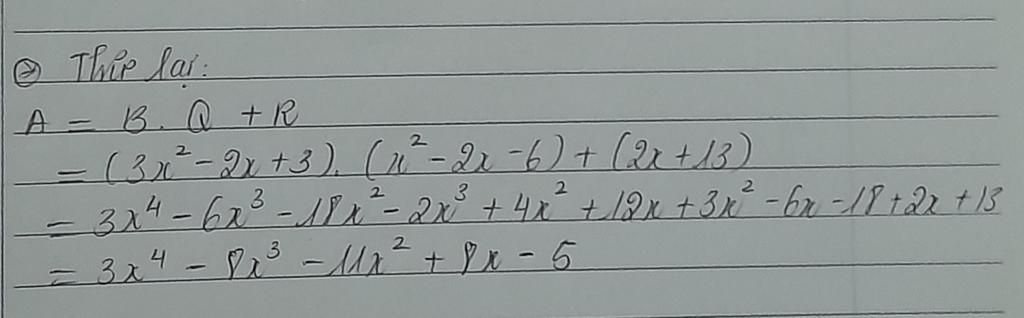 ② Thử lại:
A = B. Q + R
= (3x² - 2x + 3). (x² - 2x - 6) + (2x + 13)
= 3x⁴ - 6x³ - 18x² - 2x³ + 4x² + 12x + 3x² - 6x - 18 + 2x + 13
= 3x⁴ - 8x³ - 11x² + 8x - 5